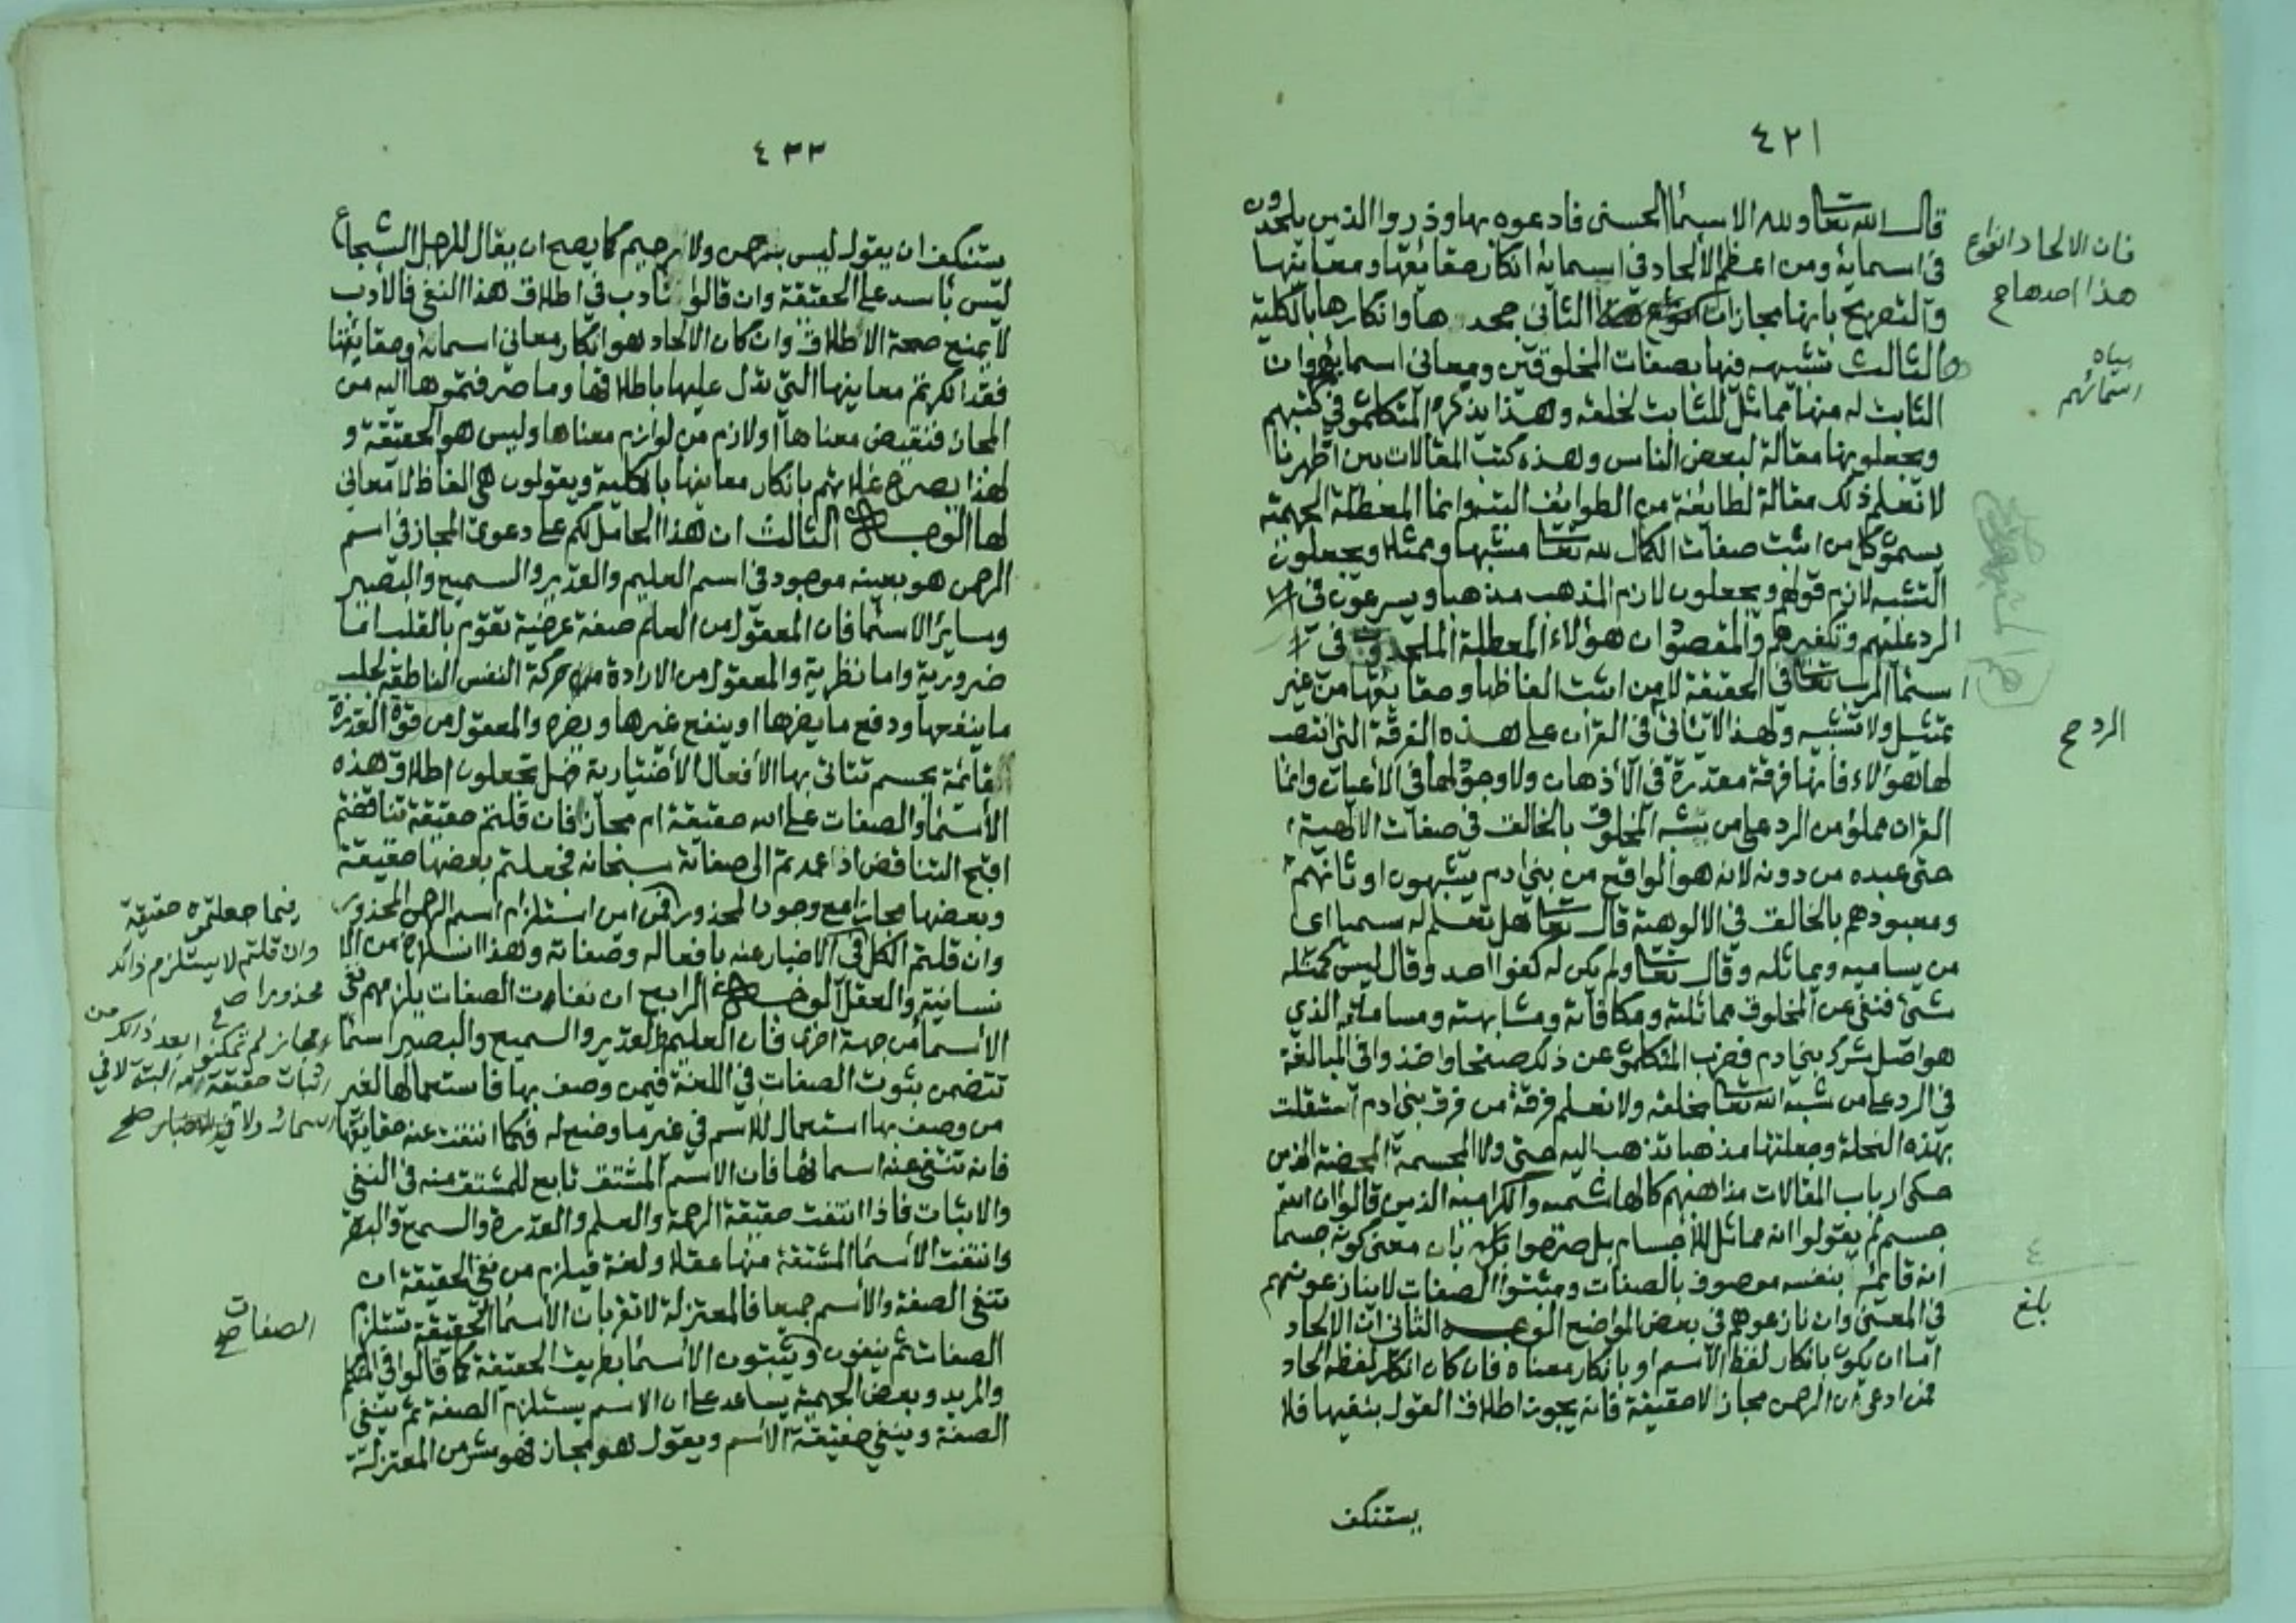 ٤٢١
قال الله تعا ولله الاسما الحسنى فادعوه بها وذروا الذين يلحدون
في اسمايه ومن اعظم الالحاد في اسمايه انكار حقايقها ومعانيها
والتصريح بانها مجازات الثاني جحدها وانكارها بالكلية
والثالث تشبيهه فيها بصفات المخلوقين ومعاني اسمايهم وان
الثابت له منها مماثل للثابت لخلقه وهذا يذكره المتكلمون في كتبهم
ويجعلونها مقالة لبعض الناس وهذه كتب المقالات بين اظهرنا
لا نعلم ذلك مقالة لطايفة من الطوايف البتة وانما المعطلة الجهمية
يسمون كل من اثبت صفات الكمال لله تعا مشبها وممثلا ويجعلون
التشبيه لازم قولهم ويجعلون لازم المذهب مذهبا ويسرعون في
الرد عليهم وتكفيرهم والمقصود ان هؤلاء المعطلة الملحدون في
اسما الرب تعا في الحقيقة لا من اثبت الفاظها وحقايقها من غير
تمثيل ولا تشبيه ولهذا لا يأتي في القرآن على هذه الفرقة التي انتصب
لها هؤلاء فانها فرقة مقدرة في الاذهان ولا وجود لها في الاعيان وانما
القران مملو من الرد على من يشبه المخلوق بالخالق في صفات الالهية
حتى عبده من دونه لانه هو الواقع من بني ادم يشبهون اوثانهم
ومعبودهم بالخالق في الالوهية قال تعا هل تعلم له سميا اي
من يساميه ويماثله وقال تعا ولم يكن له كفوا احد وقال ليس كمثله
شيء فنفى عن المخلوق مماثلته ومكافاته ومشابهته ومساماته الذي
هو اصل شرك بني ادم فضرب المتكلمون عن ذلك صفحا واخذوا في المبالغة
في الرد على من شبه الله تعا بخلقه ولا نعلم فرقة من فرق بني ادم استقلت
بهذه النحلة وجعلتها مذهبا تذهب اليه حتى ولا المجسمة المحضة الذين
حكى ارباب المقالات مذاهبهم كالهاشمية والكرامية الذين قالوا ان الله
جسم لم يقولوا انه مماثل للاجسام بل صرحوا بان معنى كونه جسما
انه قائم بنفسه موصوف بالصفات ومثبتوا الصفات لا ينازعونهم
في المعنى وان نازعوهم في بعض المواضع الوجه الثاني ان الالحاد
اما ان يكون بانكار لفظ الاسم او بانكار معناه فان كان انكار لفظه الحاد
فمن ادعى ان الرحمن مجاز لا حقيقة فانه يجوز اطلاق القول بنفيها فلا
يستنكف
فان الالحاد انواع
هذا احدها صح
اسمائهم
الرد صح
٤
بلغ
٤٢٢
يستنكف ان يقول ليس برحمن ولا رحيم كما يصح ان يقال للرجل الشجاع
ليس باسد على الحقيقة وان قالوا نتادب في اطلاق هذا النفي فالادب
لا يمنع صحة الاطلاق وان كان الالحاد هو انكار معاني اسمائه وحقايقها
فقد انكرتم معانيها التي تدل عليها باطلاقها وما صرفتموها اليه من
المجاز فنقيض معناها او لازم من لوازم معناها وليس هو الحقيقة و
لهذا يصرح غلاتهم بانكار معانيها بالكلية ويقولون هي الفاظ لا معاني
لها الوجه الثالث ان هذا الحامل لكم على دعوى المجاز في اسم
الرحمن هو بعينه موجود في اسم العليم والقدير والسميع والبصير
وساير الاسما فان المعقول من العلم صفة عرضية تقوم بالقلب اما
ضرورية واما نظرية والمعقول من الارادة حركة النفس الناطقة لجلب
ما ينفعها ودفع ما يضرها او ينفع غيرها ويضره والمعقول من قوة القدرة
القائمة بجسم تتاتى بها الافعال الاختيارية فهل تجعلون اطلاق هذه
الاسما والصفات على الله حقيقة ام مجاز فان قلتم حقيقة تناقضتم
اقبح التناقض اذ عمدتم الى صفاته سبحانه فجعلتم بعضها حقيقة
وبعضها مجازا مع وجود المحذور فمن اين استلزام اسم الرحمن المحذور
وان قلتم الكل في الاخبار عنه بافعاله وصفاته وهذا انسلاخ من الا
نسانية والعقل الوجه الرابع ان نفات الصفات يلزمهم نفي
الاسما من جهة اخرى فان العليم والقدير والسميع والبصير اسما
تتضمن ثبوت الصفات في اللغة فيمن وصف بها فاستعمالها لغير
من وصف بها استعمال للاسم في غير ما وضع له فكما انتفت عنه حقايقها
فانه تنتفي عنه اسمائها فان الاسم المشتق تابع للمشتق منه في النفي
والاثبات فاذا انتفت حقيقة الرحمة والعلم والقدرة والسمع والبصر
وانتفت الاسما المشتقة منها عقلا ولغة فيلزم من نفي الحقيقة ان
تنفى الصفة والاسم جميعا فالمعتزلة لا تقر بان الاسما الحقيقة تستلزم
الصفات ثم ينفون ويثبتون الاسما بطريق الحقيقة كما قالوا في المتكلم
والمريد وبعض الجهمية يساعد على ان الاسم يستلزم الصفة ثم ينفي
الصفة وينفي حقيقة الاسم ويقول هو مجاز فهو شر من المعتزلة
فيما جعلتموه حقيقة
وان قلتم لا يستلزم ذلك
محذورا صح
مجاز لم تمكنوا بعد ذلك من
اثبات حقيقة لله البتة لا في
اسمائه ولا في الاخبار صح
الصفات صح